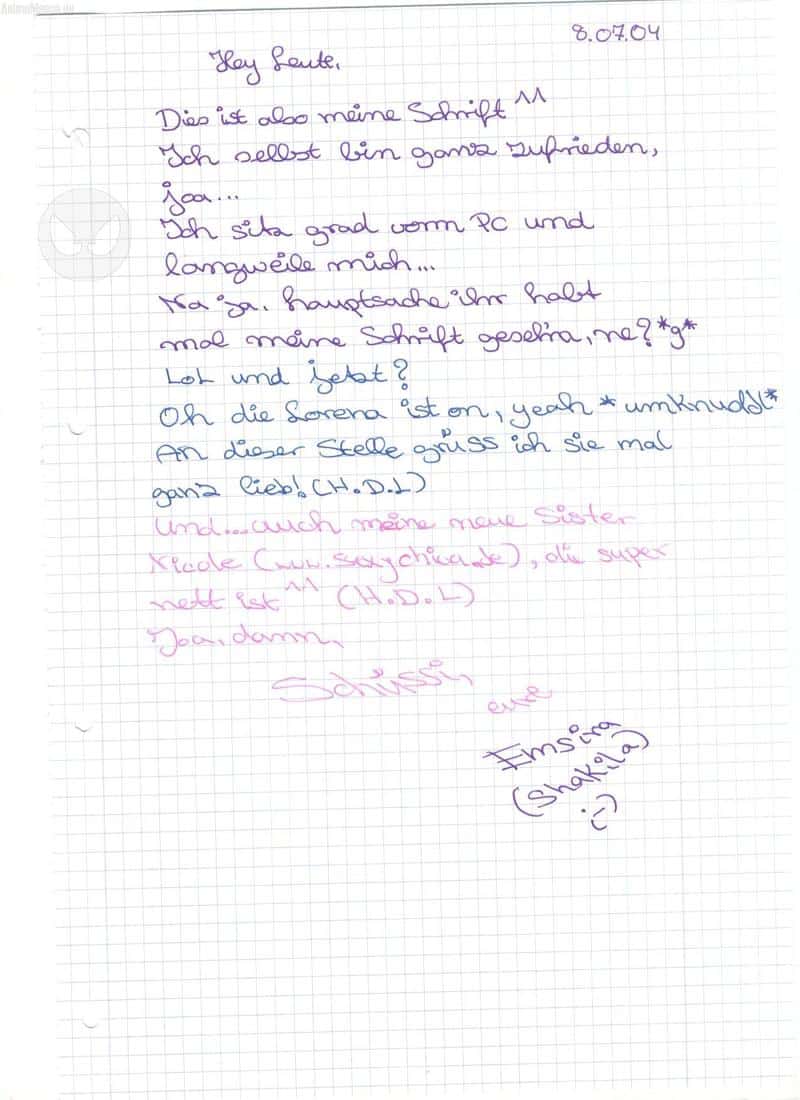 AnimeManga.de
8.07.04
Hey Leute,
Dies ist also meine Schrift ^^
Ich selbst bin ganz zufrieden,
joa...
Ich sitz grad vorm PC und
langweile mich...
Na ja, hauptsache ihr habt
mal meine Schrift gesehn, ne? *g*
LoL und jetzt?
Oh die Lorena ist on, yeah *umknuddl*
An dieser Stelle grüss ich sie mal
ganz lieb! (H.D.L)
Und...auch meine neue Sister
(www.sexychica.de), die super
nett ist ^^ (H.D.L)
Joa, dann,
Schüssi,
eure
Emsira
(Shakila)
;-)